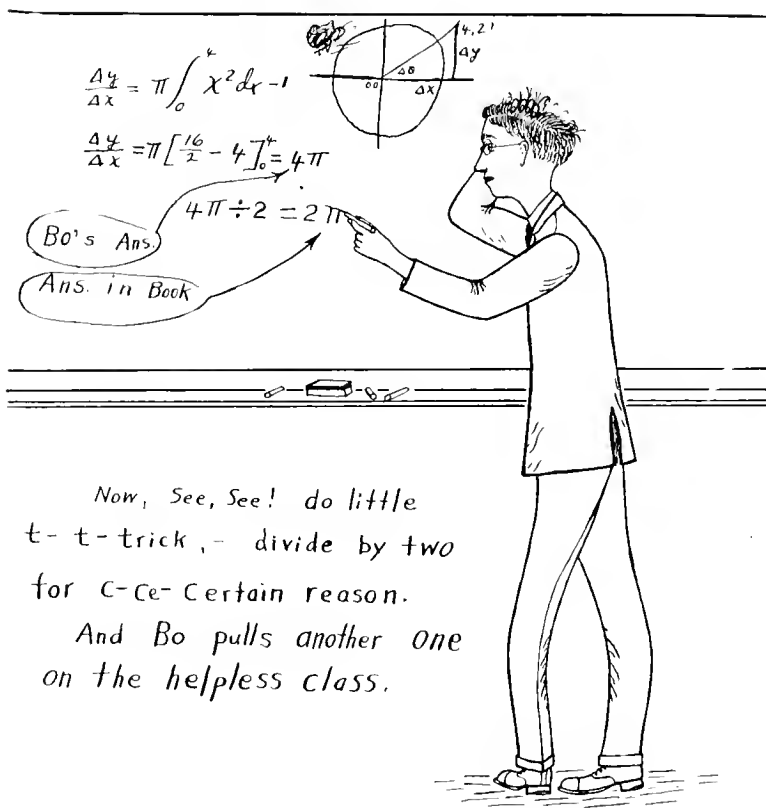 4,2'
Δy
Δθ
Δx
00
Δy/Δx = π∫₀⁴ x²dx-1
Δy/Δx = π[16/2 - 4]₀⁴ = 4π
4π÷2 = 2π
Bo's Ans.
Ans. in Book
Now, See, See! do little
t- t- trick,- divide by two
for c-ce- certain reason.
And Bo pulls another one
on the helpless class.